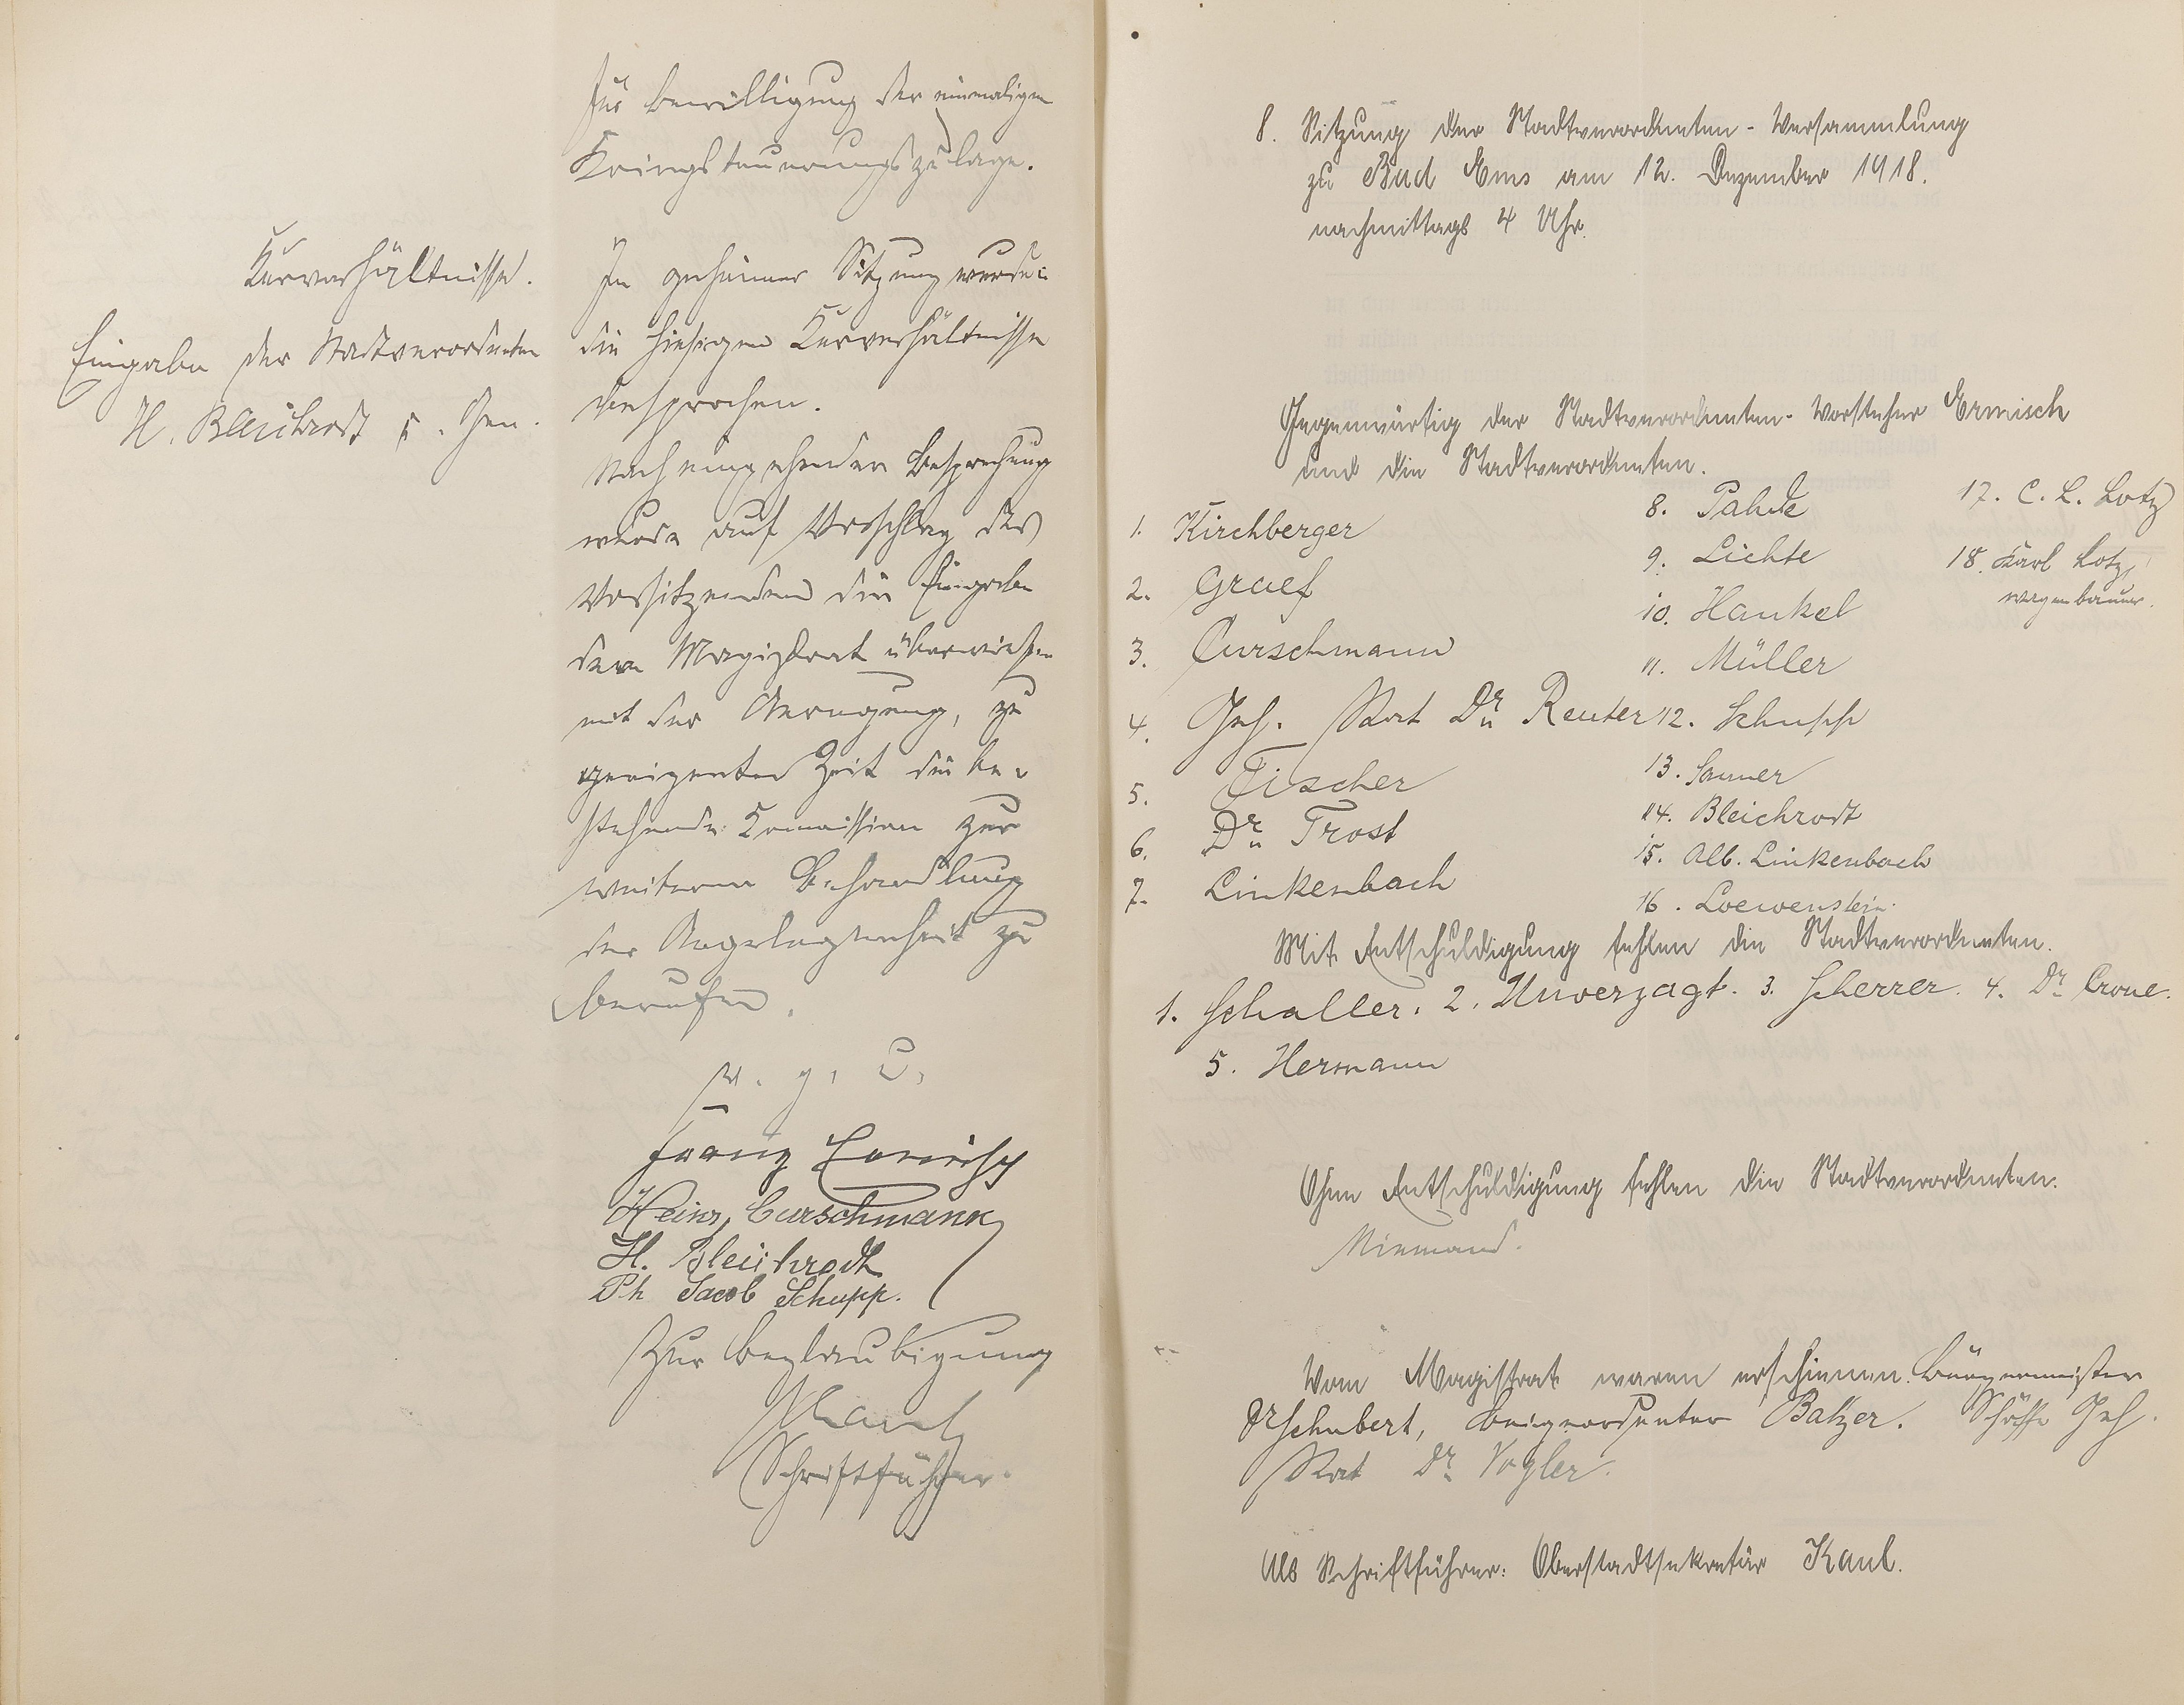 für Bewilligung der einmaligen
Kriegsteuerungszulage.
Kurverhältnisse.
Eingabe der Stadtverordneten
H. Bleichrodt u. Gen.
In geheimer Sitzung wurden
die hiesigen Kurverhältnisse
besprochen.
Nach eingehender Besprechung
wurde auf Vorschlag des
Vorsitzenden die Eingabe
dem Magistrat überwiesen
mit der Anregung, zu
geeigneter Zeit die be-
stehende Kommission zur
weiteren Behandlung
der Angelegenheit zu
berufen.
v. g. u.
Franz Ermisch
Heinr. Curschmann
H. Bleichrodt
Ph Jacob Schupp.
Zur Beglaubigung
Kaul
Schriftführer.
8. Sitzung der Stadtverordneten-Versammlung
zu Bad Ems am 12. Dezember 1918.
nachmittags 4 Uhr.
Gegenwärtig der Stadtverordneten-Vorsteher Ermisch
und die Stadtverordneten.
1. Kirchberger
2. Graef
3. Curschmann
4. Geh. Rat Dr. Reuter
5. Fischer
6. Dr. Trost
7. Linkenbach
8. Pahde
9. Lichte
10. Hankel
11. Müller
12. Schupp
13. Sauer
14. Bleichrodt
15. Alb. Linkenbach
16. Loewenstein.
17. C. L. Lotz
18. Karl Lotz,
Wagenbauer.
Mit Entschuldigung fehlen die Stadtverordneten.
1. Schaller. 2. Unverzagt. 3. Scherrer. 4. Dr. Crone.
5. Hermann
Ohne Entschuldigung fehlen die Stadtverordneten:
Niemand.
Vom Magistrat waren erschienen: Bürgermeister
Dr Schubert, Beigeordneter Balzer. Schöffe Geh.
Rat Dr. Vogler.
Als Schriftführer: Oberstadtsekretär Kaul.